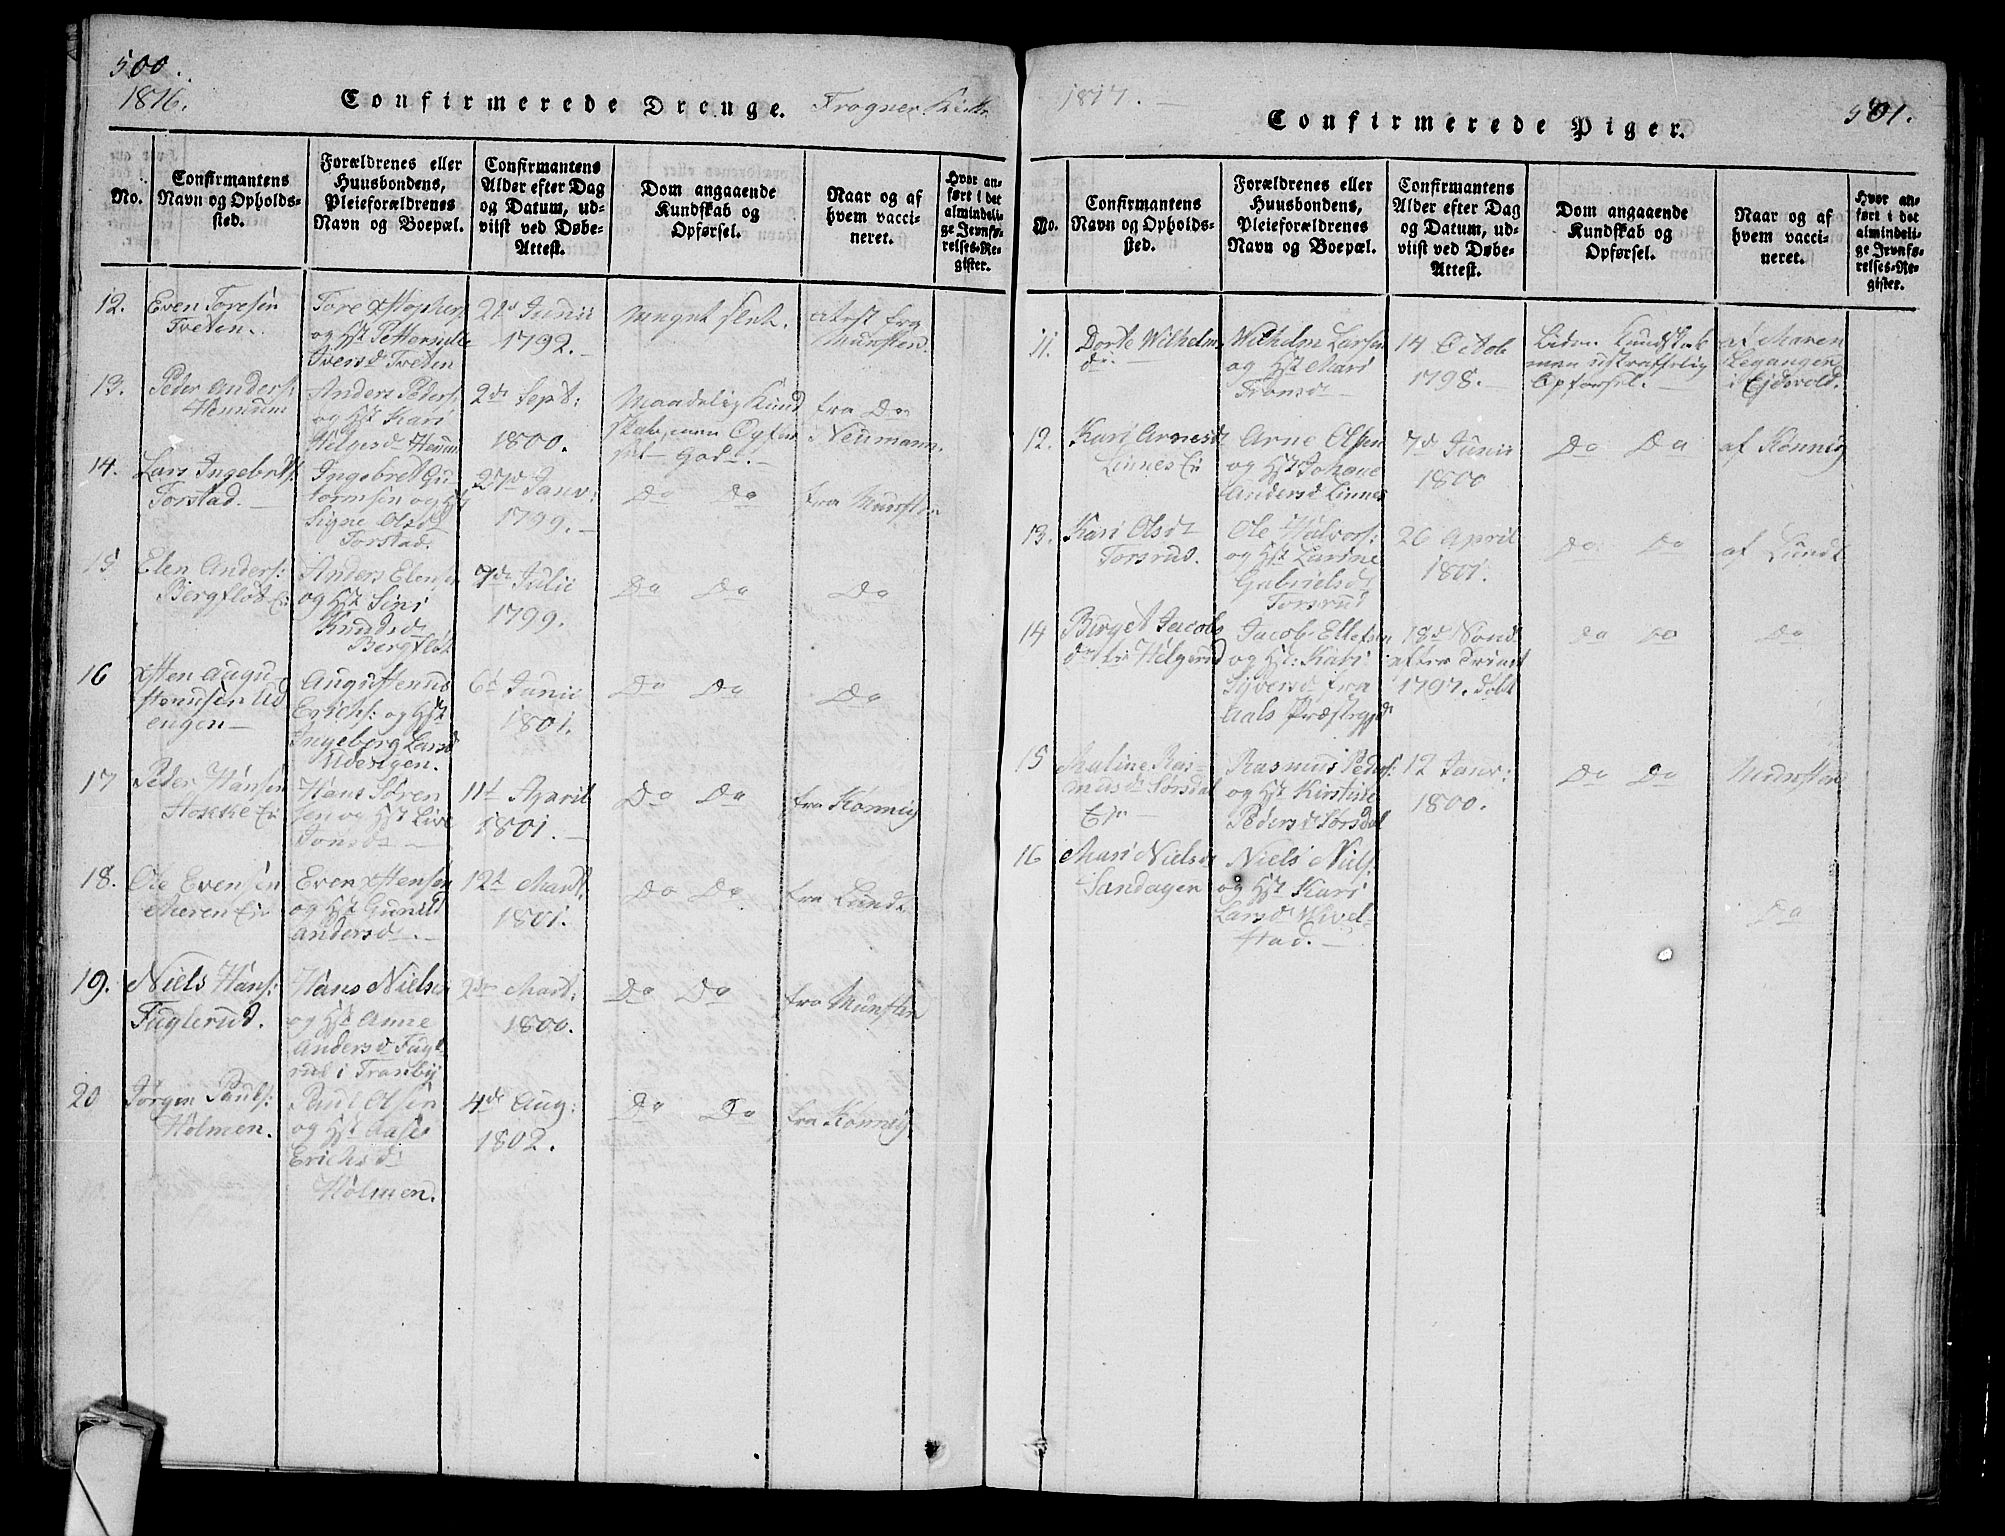 500.
1816.
Confirmerede Drenge. Frogner Kirke
No.
Confirmantens
Navn og Opholds-
sted.
Forældrenes eller
Huusbondens,
Pleieforældrenes
Navn og Boepæl.
Confirmantens
Alder efter Dag
og Datum, ud-
viist ved Døbe-
Attest.
Dom angaaende
Kundskab og
Opførsel.
Naar og af
hvem vacci-
neret.
Hvor an-
ført i det
almindeli-
ge Jevnfø-
relses-Re-
gister.
12.
Even Toresen
Tveten.
Tore
og Hst Petternelle
Iversd Tveten
21de Junii
1792.
meget slet.
Attest fra
Munster.
13.
Peder Anders:
Hennum
Anders Peders:
og Hst Kari
Helgesd Hennum
2de Sept:
1800.
Maadelig Kund
skab, men Opfør
sel God.
fra Do
Neumann.
14.
Lars Ingebrets:
Torstad.
Ingebret Gu
tormsen og Hst
Signe Olsd
Torstad.
27d Janv:
1799.
Do Do
fra Munster
15
Elen Anders:
Bergfløt Ei
Anders Elensen
og Hst Siri
Knudsd
Bergfløt
7de Julii
1799.
Do Do
Do
16
Xsten Augu
stenusen Ud
engen
Augustenus
Erichs: og Hst
Ingeborg Larsd
Udengen.
6d Junii
1801.
Do Do
Do
17
Peder Hansen
Ei
Hans Søren
sen og Hst Live
Jonsd
11t April
1801.
Do Do
fra Kønnig
18.
Ole Evensen
Meren Ei
Even Xstensen
og Hst Gunild
Andersd
12t Mart
1801.
Do Do
fra Lund
19.
Niels Hans:
Fuglerud.
Hans Nielsen
og Hst Anne
Andersd Fugl
rud i Tranby
2den Mart:
1800.
Do Do
fra Munster
20
Jørgen Pauls:
Holmen.
Paul Olsen
og Hst Aase
Erichsd
Holmen.
4de Aug:
1802.
Do Do
fra Kønnig
1817.
501.
Confirmerede Piger.
No.
Confirmantens
Navn og Opholds-
sted.
Forældrenes eller
Huusbondens,
Pleieforældrenes
Navn og Boepæl.
Confirmantens
Alder efter Dag
og Datum, ud-
viist ved Døbe-
Attest.
Dom angaaende
Kundskab og
Opførsel.
Naar og af
hvem vacci-
neret.
Hvor an-
ført i det
almindeli-
ge Jevnfø-
relses-Re-
gister.
11.
Dorte Wilhelms
d:
Wilhelm Larsen
og Hst Mari
14 Octob
1798.
Liden Kundskab
men ustraffelig
Opførsel.
af Maren
Leganger
i Eidsvold.
12.
Kari Arnesd
Linnes Ei
Arne Olsen
og Hst Johane
Andersd Linnes
7d Junii
1800
Do Do
af Kønnig
13.
Kari Olsd
Torsrud.
Ole Halvors:
og Hst Lavine
Gabrielsd
Torsrud
20 April
1801.
Do Do
af Lund
14
Birget Jacobs
d Helgerud
Jacob Ellefsen
og Hst: Kari
Sijversd fra
Aals Præstegjd
18d Sønd
after Trinit
1797. døbt
Do Do
Do
15
Maline Ras-
musd Sørsdal
Ei
Rasmus Peders:
og Hst Kirstine
Pedersd Sørsdal
12 Janv:
1800.
Do Do
Munster
16
Mari Nielsd
Sandagen
Niels Niels.
og Hst Kari
Larsd Hivel-
stad.
Do